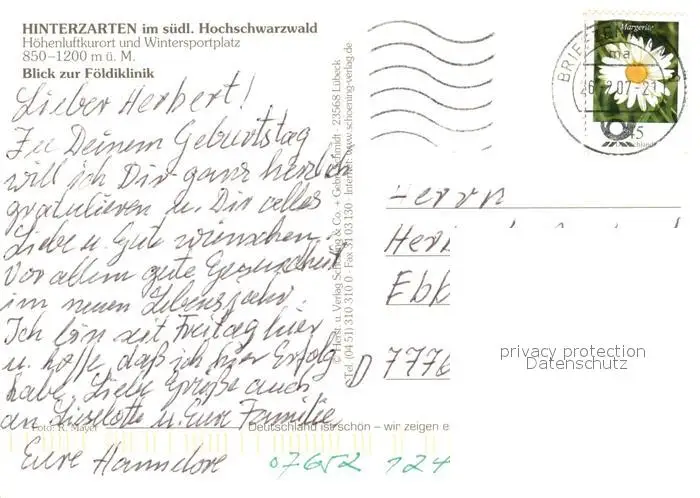 HINTERZARTEN im südl. Hochschwarzwald
Höhenluftkurort und Wintersportplatz
850–1200 m ü. M.
Blick zur Földiklinik
Lieber Herbert!
Zu Deinem Geburtstag
will ich Dir ganz herzlich
gratulieren u. Dir alles
Liebe u. Gute wünschen.
Vor allem gute Gesundheit
im neuen Lebensjahr.
Ich bin seit Freitag hier
u. hoffe, daß ich hier Erfolg
habe. Liebe Grüße auch
an Lieselotte u. Eure Familie
Eure Hannelore
07652 124
Foto: R. Mayer
Deutschland ist schön – wir zeigen e
© Herst. u. Verlag Schöning & Co. + Gebr. Schmidt · 23568 Lübeck
Tel. (04 51) 310 310 0 · Fax 31 03 130 · Internet: www.schoening-verlag.de
Margerite
45
BRIEFZEN
26. 2.07-21
Herrn
Her
Ebb
D 7776
privacy protection
Datenschutz